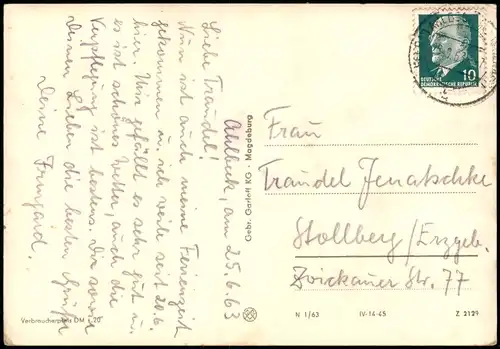 Ahlbeck, am 25.6.63
Liebe Traudel!
Nun ist auch meine Ferienzeit
gekommen u. ich weile seit 20.6.
hier. Mir gefällt es sehr gut u.
es ist schönes Wetter, auch die
Verpflegung ist bestens. Dir sowie
Deinen Lieben die besten Grüße
Deine Irmgard.
Verbraucherpreis DM -,20
Gebr. Garloff KG · Magdeburg
10
DEUTSCHE
DEMOKRATISCHE REPUBLIK
Frau
Traudel Jenatschke
Stollberg/Erzgeb.
Zwickauer Str. 77
N 1/63 IV-14-48 Z 2129